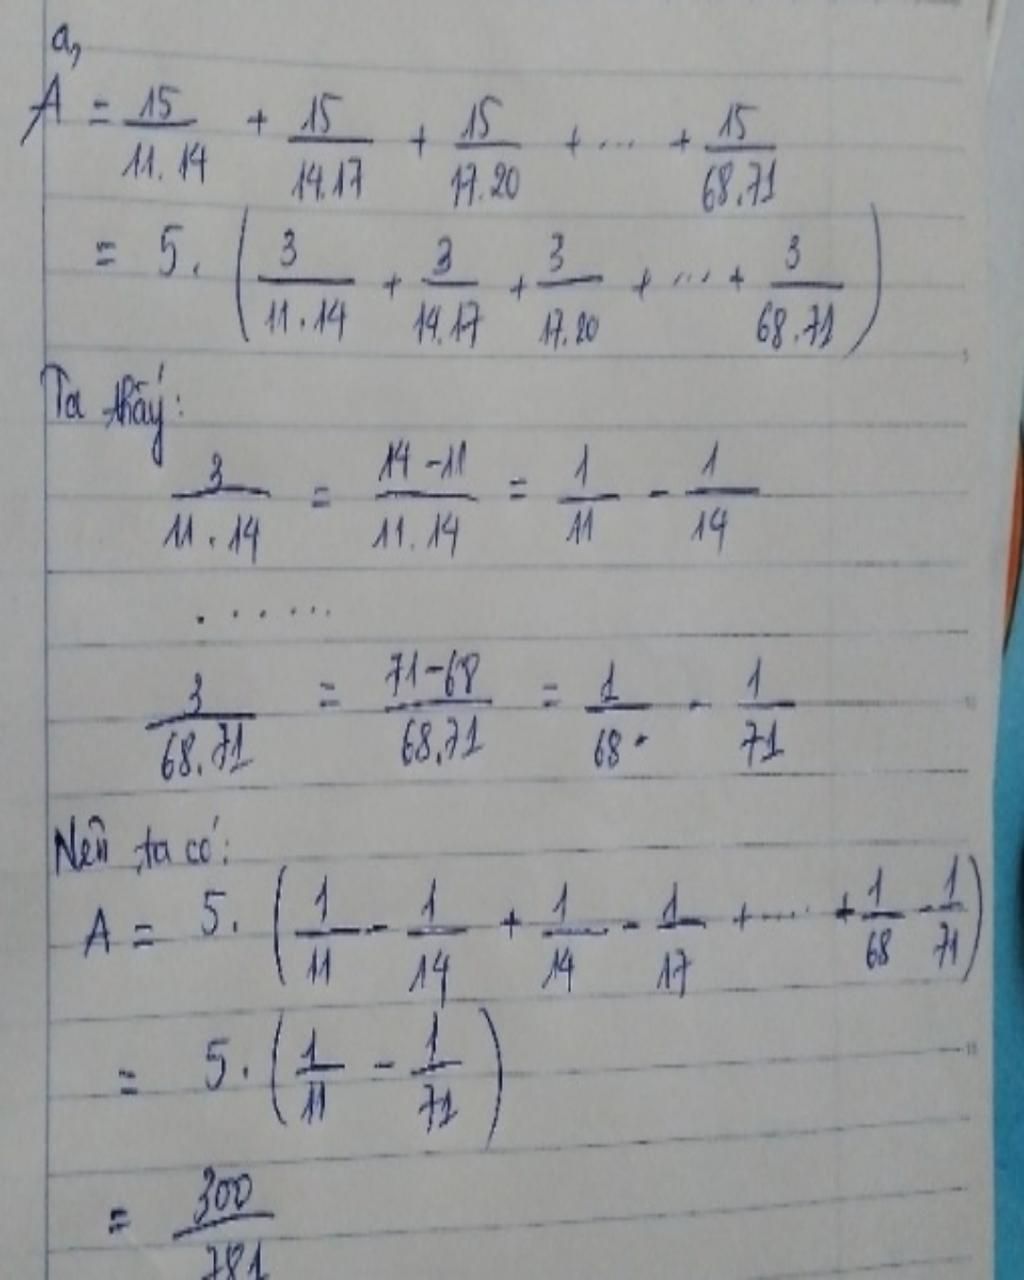 a,
A = 15/11.14 + 15/14.17 + 15/17.20 + ... + 15/68.71
= 5. (3/11.14 + 3/14.17 + 3/17.20 + ... + 3/68.71)
Ta thấy:
3/11.14 = 14-11/11.14 = 1/11 - 1/14
.......
3/68.71 = 71-68/68.71 = 1/68 - 1/71
Nên ta có:
A = 5. (1/11 - 1/14 + 1/14 - 1/17 + .... + 1/68 - 1/71)
= 5. (1/11 - 1/71)
= 300/781